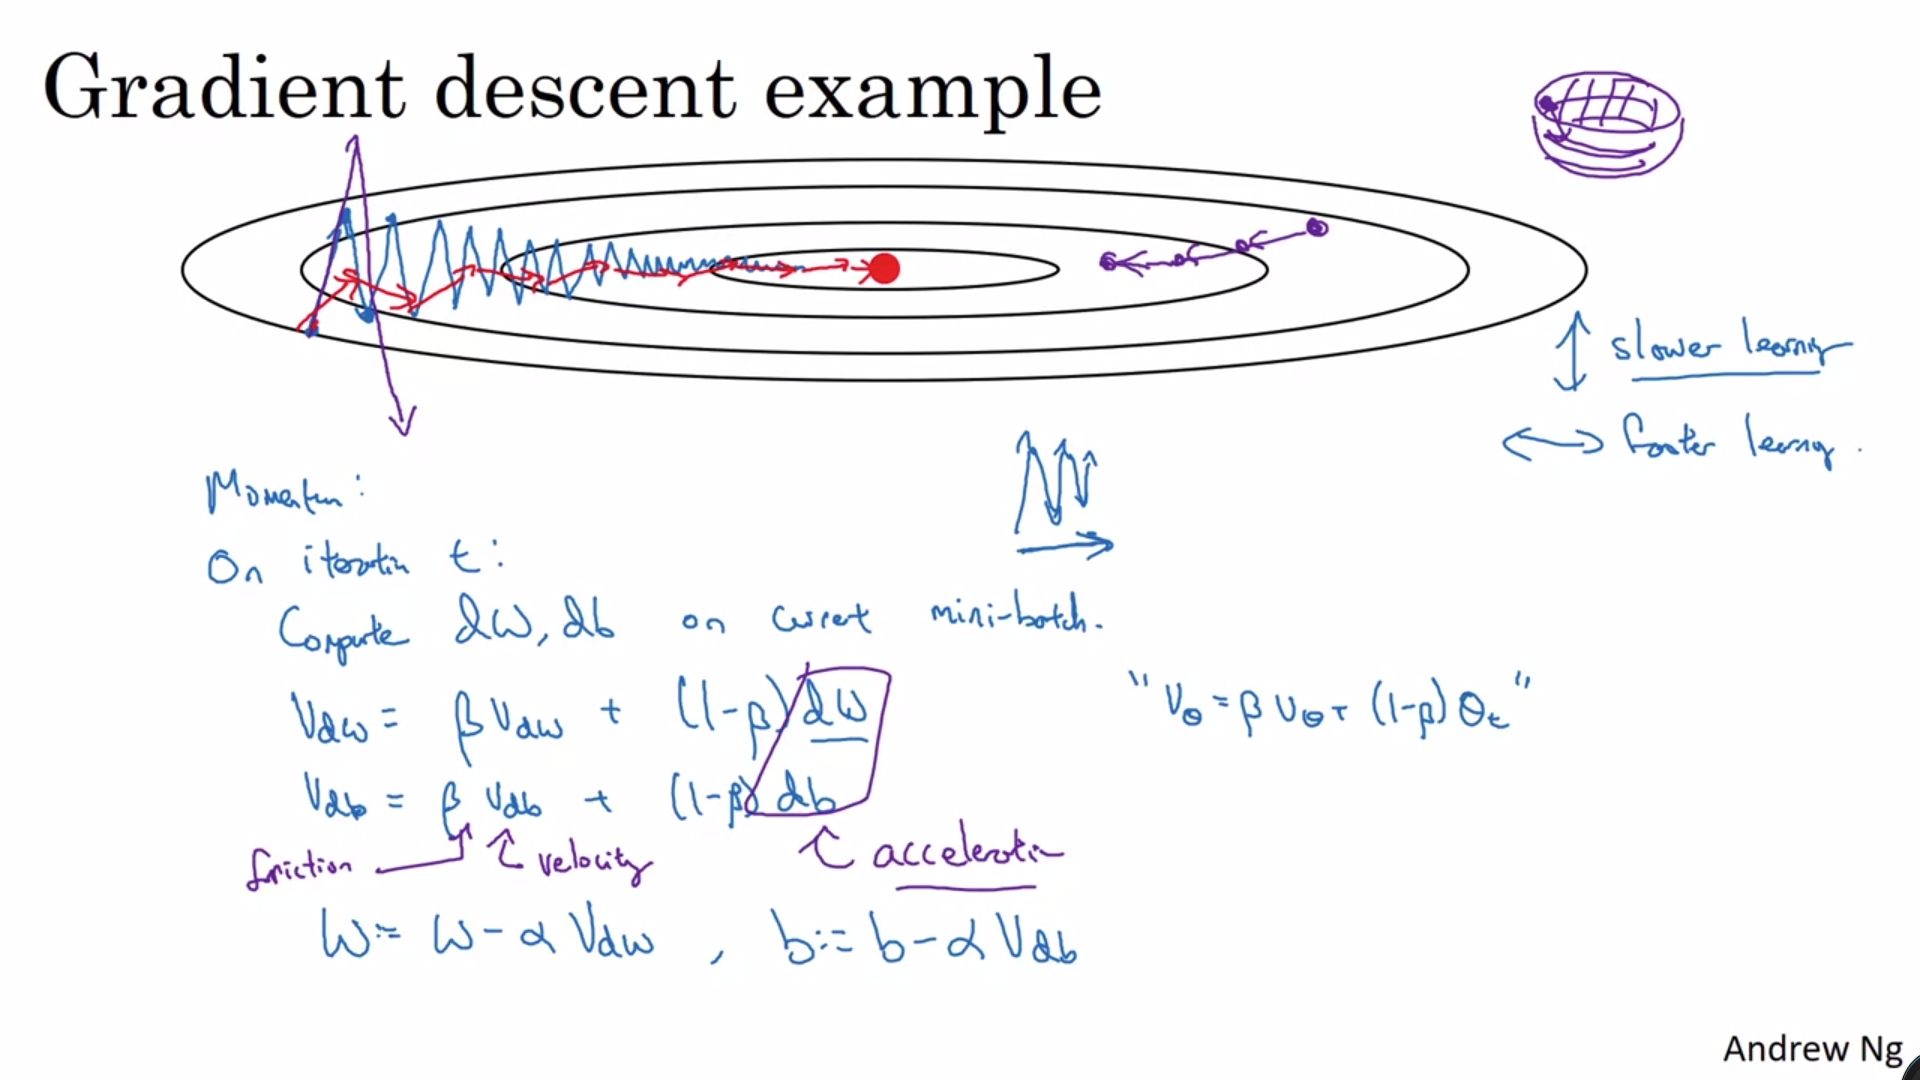 Gradient descent example
slower learning
faster learning.
Momentum:
On iteration t:
Compute dW, db on current mini-batch.
Vdw = β Vdw + (1-β) dW
"Vθ = β Vθ + (1-β) θt"
Vdb = β Vdb + (1-β) db
friction velocity acceleration
W := W - α Vdw , b := b - α Vdb
Andrew Ng